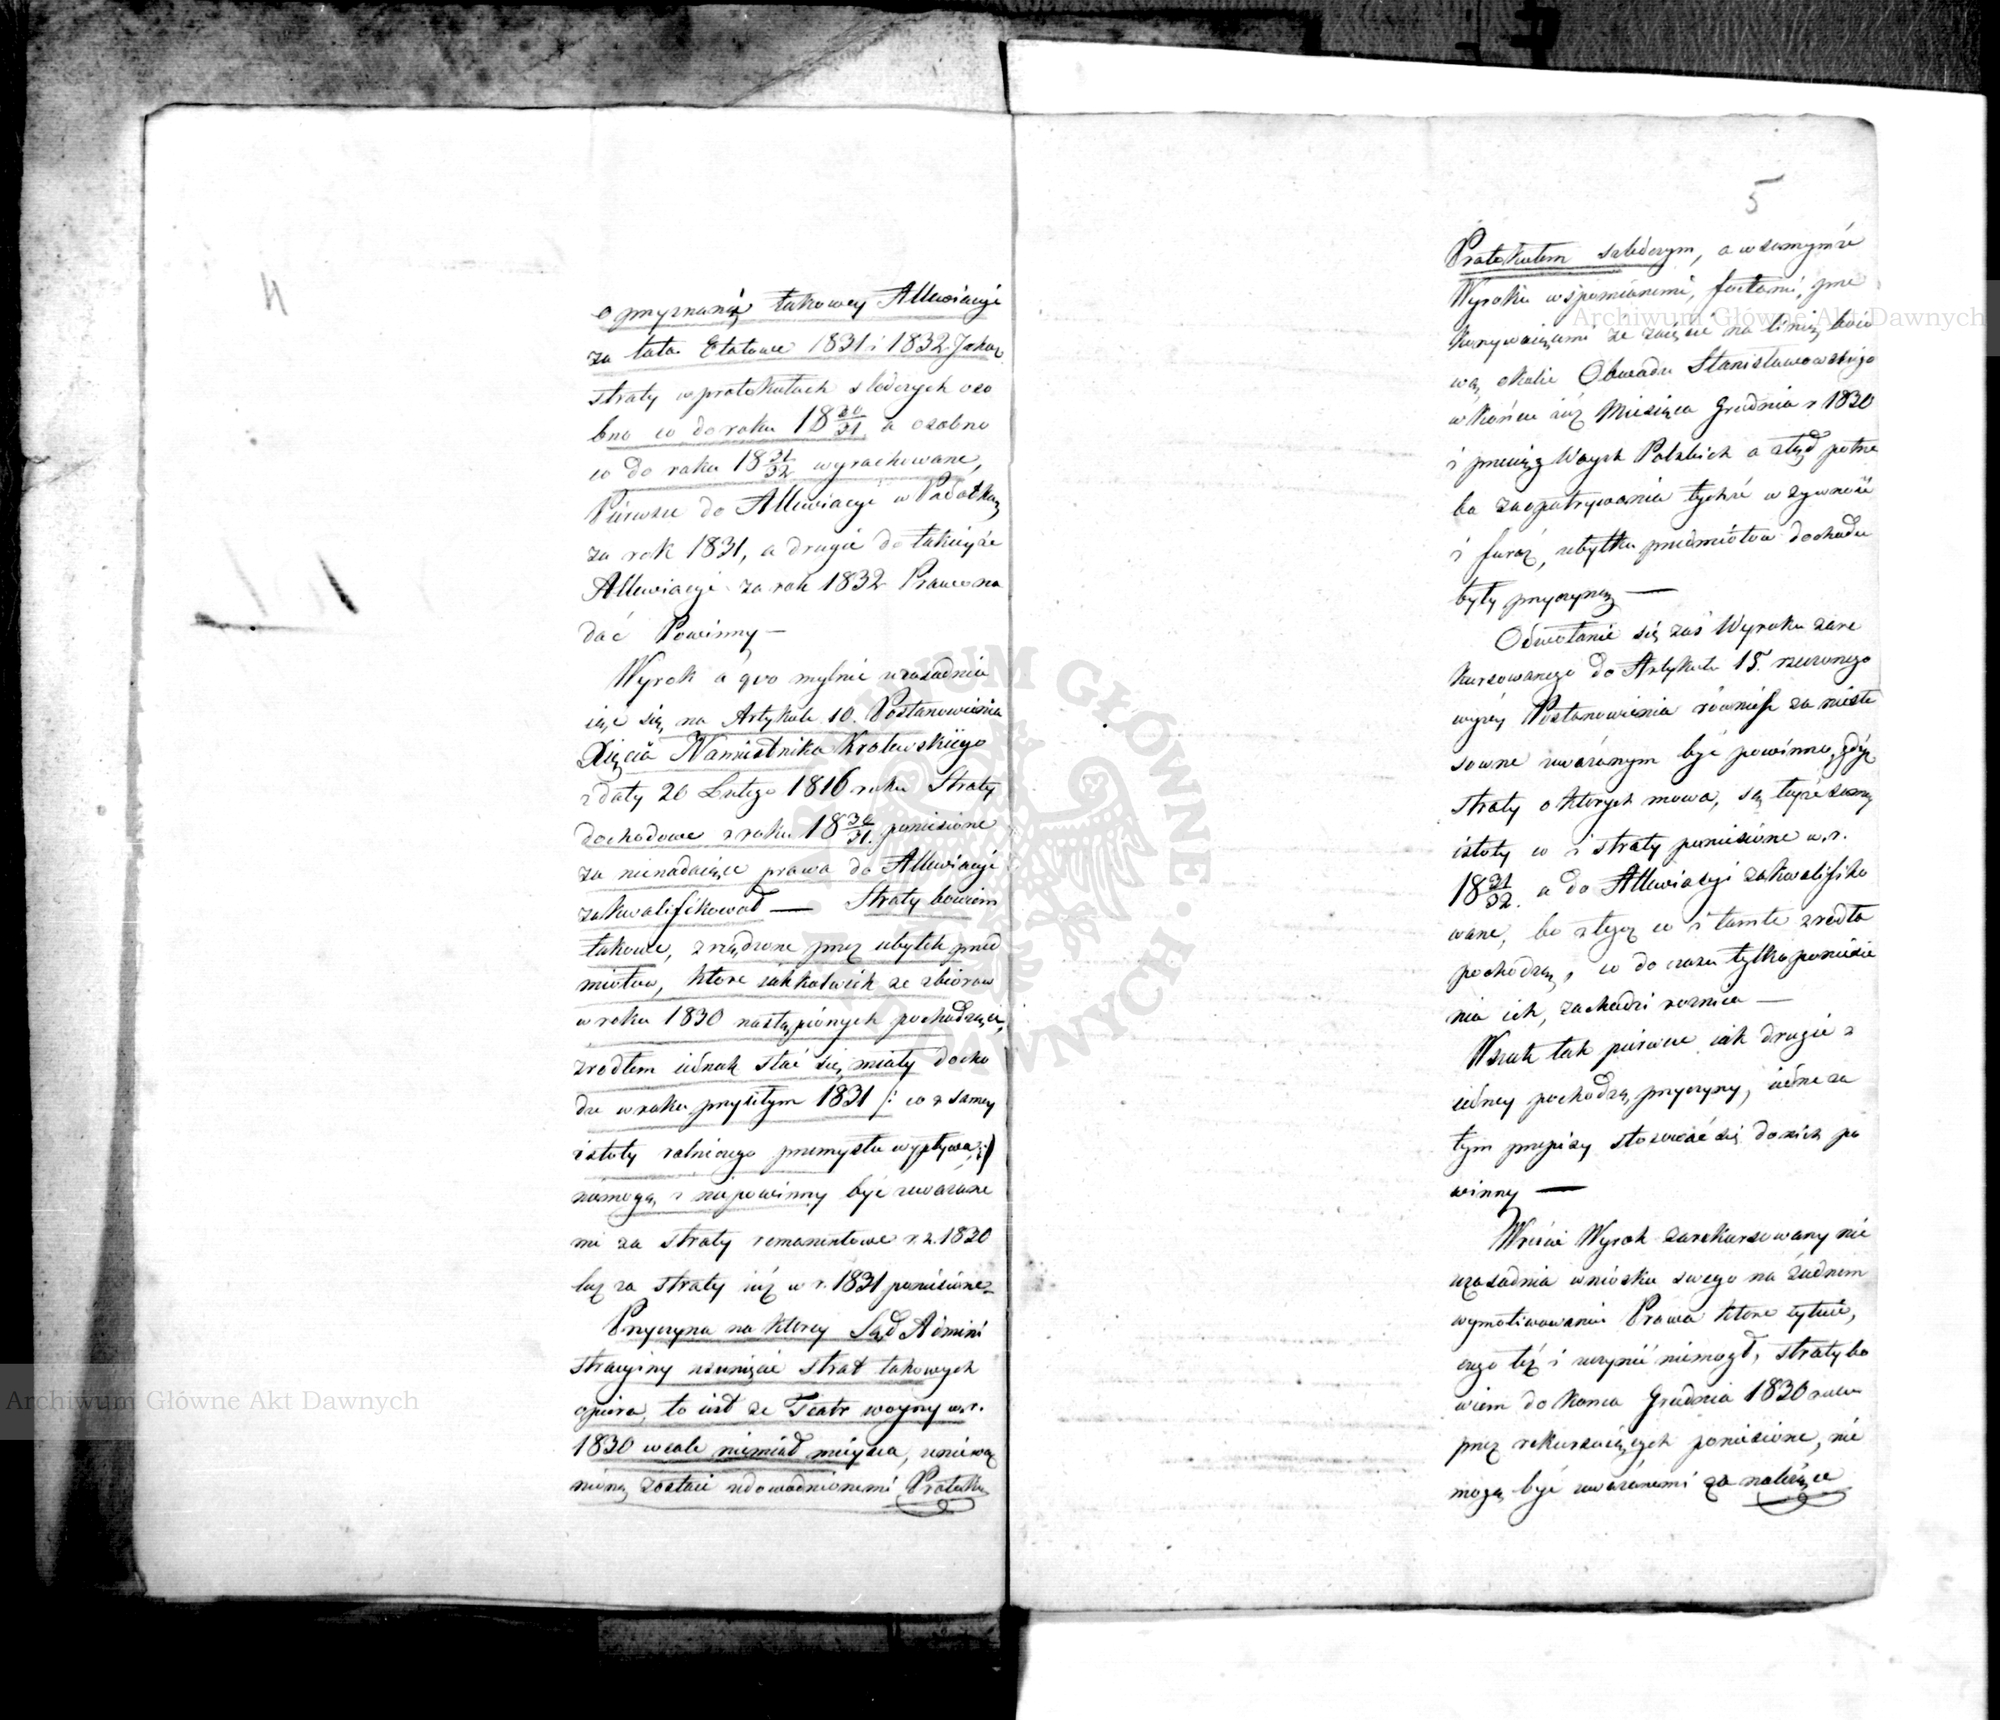 o przyznanię takowey Allewiacyi
za lata Etatowe 1831 i 1832. Jakoż
straty w protokułach sledczych oso
bno co do roku 18 30/31 a osobno
co do roku 18 31/32 wyrachowane,
Piérwsze do Allewiacyi w Podatku
za rok 1831, a drugie do takieyże
Allewiacyi za rok 1832 Prawo na
dać Powinny —
Wyrok a quo mylnie uzasadnia
iąc się na Artykule 10. Postanowienia
Xięcia Namiestnika Krolewskiego
z daty 20 Lutego 1816 roku Straty
dochodowe z roku 18 30/31. poniesione
za nienadaiące prawa do Allewiacyi
zakwalifikował — Straty bowiem
takowe, zrządzone przez ubytek przed
miotow, ktore iakkolwiek ze zbiorow
w roku 1830 nastąpionych pochodzące,
zrodłem iednak stać się miały docho
du w roku przyszłym 1831 /: co z samey
istoty rolniczego przemysłu wypływa :/
niemogą i niepowinny być uważane
mi za straty remanentowe z r. 1830
lecz za straty iuż w r. 1831 poniesione.
Przyczyna na ktorey Sąd Admini
stracyiny usunięcie strat takowych
opiera, to iest że Teatr woyny w r.
1830 wcale niemiał mieysca, unieważ
nioną zostaie udowodnionemi Protoku
5
Protokułem sledczym, a w samymże
Wyroku wspomnianemi, factami, prze
konywaiącemi że zaięcie na liniię boio
wą okolic Obwodu Stanisławowskiego
w końcu iuż Miesiąca Grudnia r 1830
i przeciąg Woysk Polskich a ztąd potrze
ba zaopatrywania tychże w żywność
i furaż, ubytku przedmiotow dochodu
były przyczyną —
Odwołanie się zaś Wyroku zare
kursowanego do Artykułu 15. rzeczonego
wyżey Postanowienia rownież za niesto
sowne uważanym być powinno, gdyż
straty o ktorych mowa, są teyże samey
istoty co i straty poniesione w r.
18 31/32. a do Allewiacyi zakwalifiko
wane, bo z tegoż co i tamte zrodła
pochodzą, co do czasu tylko poniesie
nia ich, zachodzi roznica —
Wszak tak pierwsze iak drugie z
iedney pochodzą przyczyny, iedne za
tym przepisy stosować się do nich po
winny —
Wreście Wyrok zarekursowany nie
uzasadnia wniosku swego na żadnem
wymotiwowaniu Prawa ktore cytuie,
czego też i uczynić niemogł, straty bo
wiem do konca Grudnia 1830 roku
przez rekursuiących poniesione, nie
mogą być uważanemi za należące
Archiwum Główne Akt Dawnych
Archiwum Główne Akt Dawnych
ARCHIWUM GŁÓWNE · AKT DAWNYCH ·